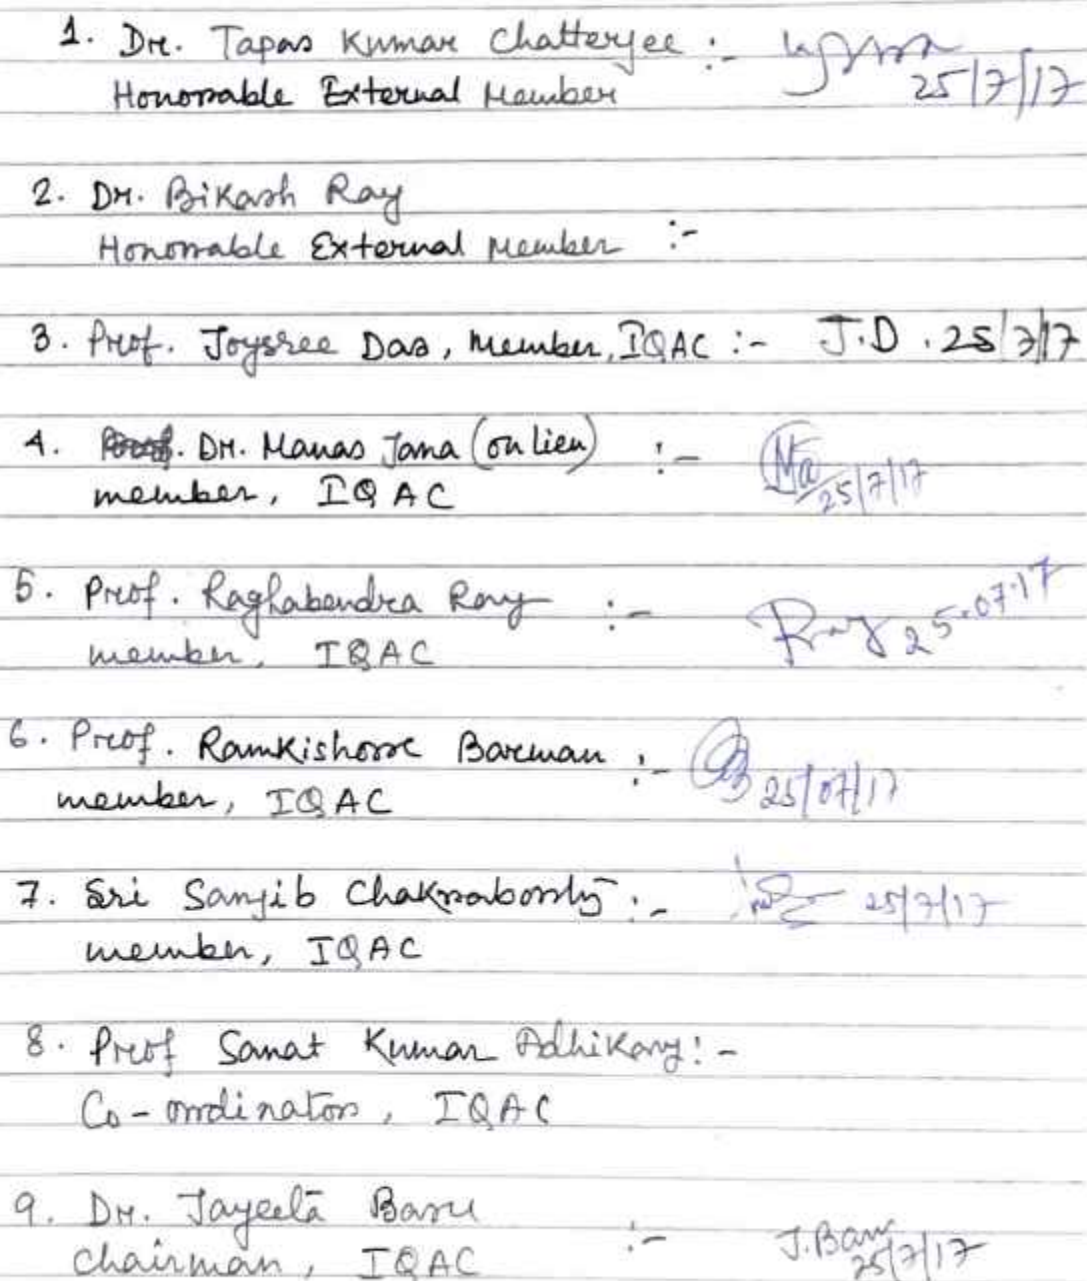 1. Dr. Tapas Kumar Chatterjee :-
25/7/17
Honorable External Member
2. Dr. Bikash Ray
Honorable External Member :-
3. Prof. Joysree Das, Member, IQAC :- J.D. 25/7/17
4. Dr. Manas Jana (on lien) :-
25/7/17
member, IQAC
5. Prof. Raghabendra Ray :- Ray 25.07.17
member, IQAC
6. Prof. Ramkishore Barman :- 25/07/17
member, IQAC
7. Sri Sanjib Chakraborty :- 25/7/17
member, IQAC
8. Prof Sanat Kumar Adhikary :-
Co-ordinator, IQAC
9. Dr. Jayeeta Basu
Chairman, IQAC :- J. Basu
25/7/17